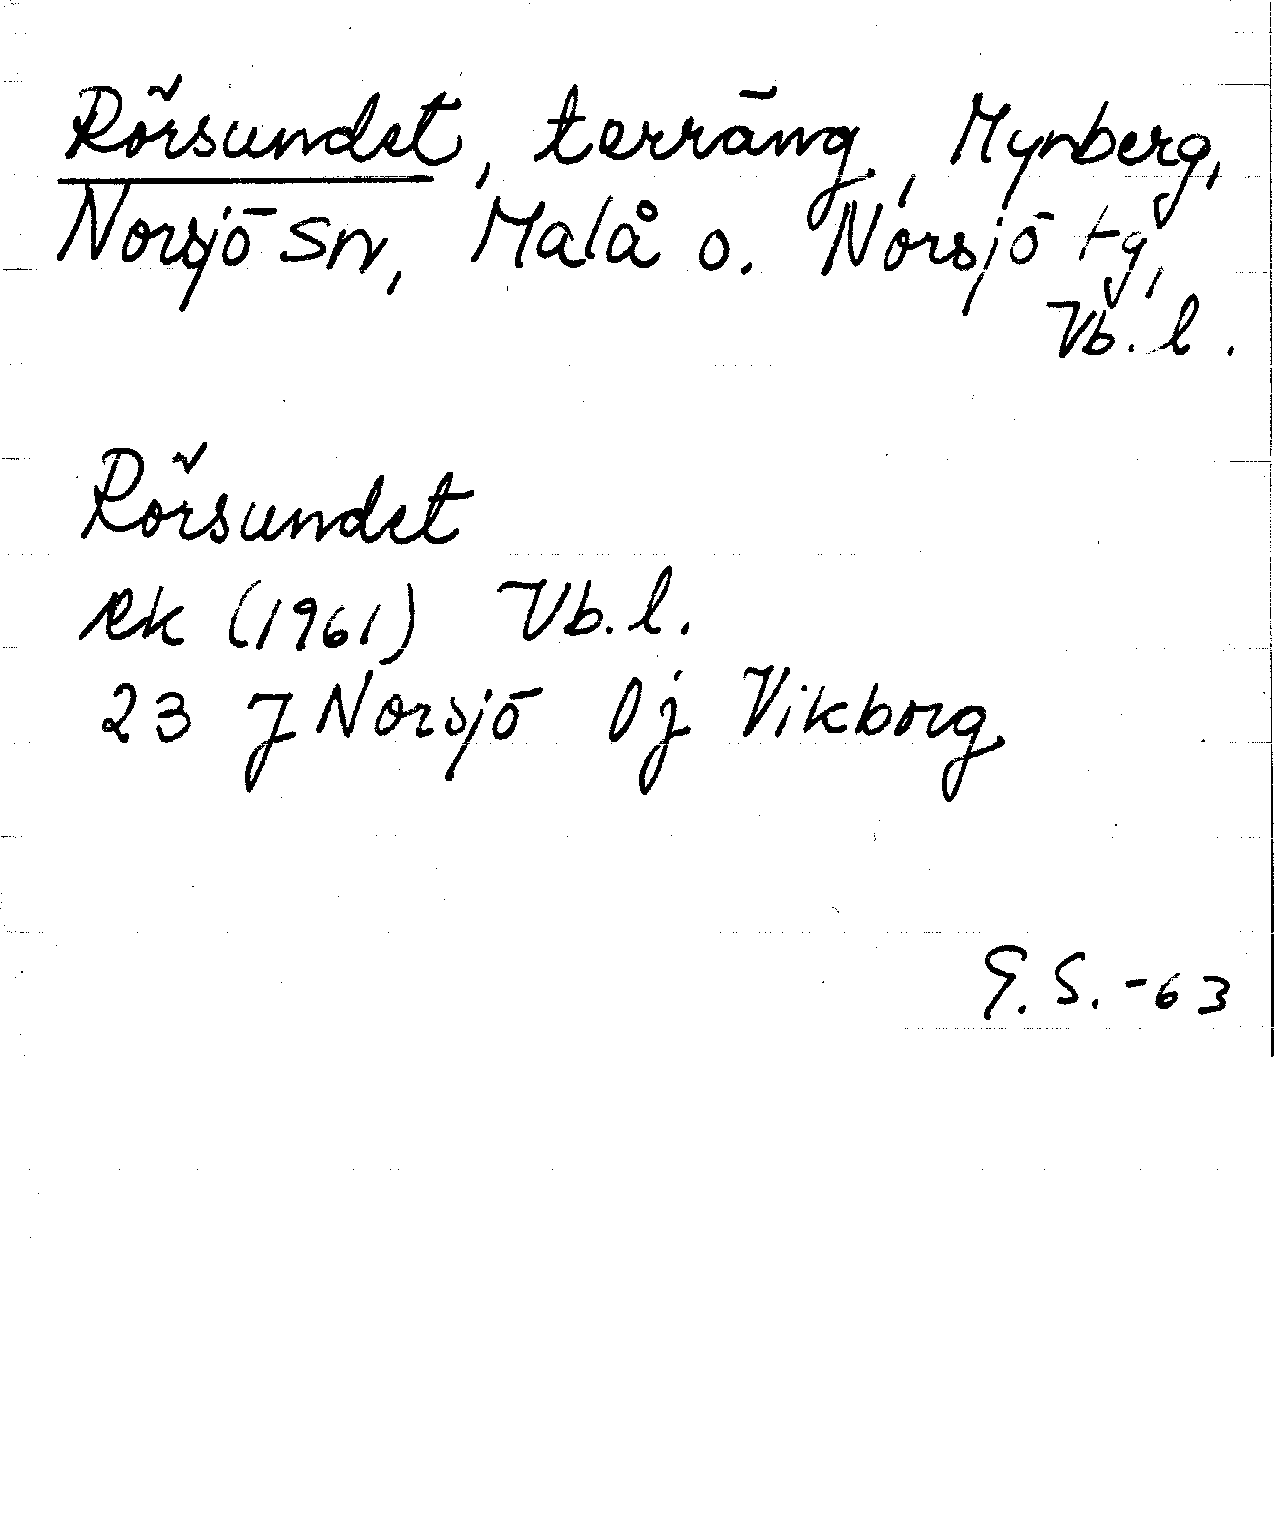 Rörsundet, terräng, Mynberg,
Norsjö sn, Malå o. Norsjö tg,
Vb. l.
Rörsundet
Rk (1961) Vb. l.
23 J Norsjö 0j Vikborg
G. S. -63